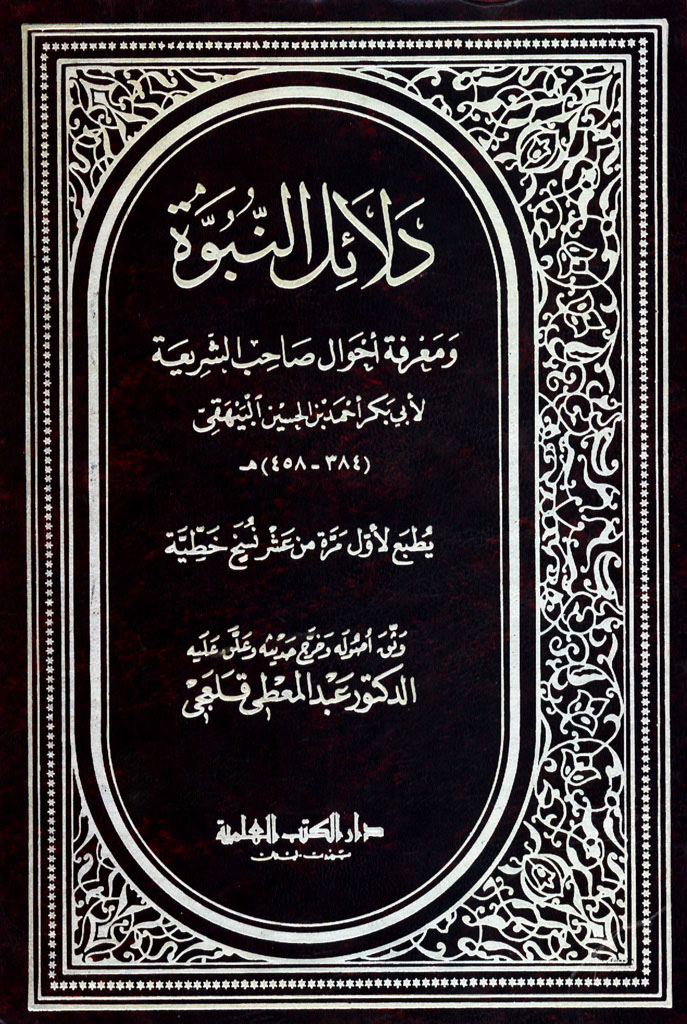 دَلَائِل النُّبُوَّة
وَمَعْرِفَة أحْوَال صَاحِب الشَّرِيعَة
لأَبِي بَكر أحْمَد بن الحسَين البَيْهَقِيّ
(٣٨٤ - ٤٥٨) هـ
يُطبَع لأَوّل مَرَّة من عَشْر نُسَخ خَطِّيَّة
وَثّقَ أصُولَه وَخَرَّج حَدِيثَه وَعَلَّق عَلَيه
الدكتور عَبْد المعْطِي قَلعَجي
دار الكتب العلمية
بيروت - لبنان